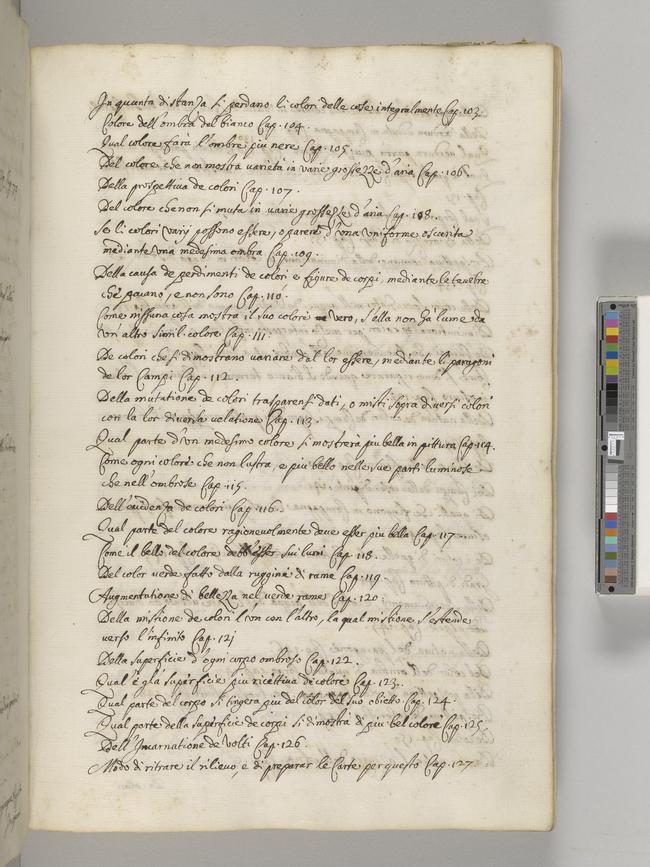 In quanta distanza si perdano li colori delle cose integralmente Cap. 103.
Colore dell'ombra del bianco Cap. 104.
Qual colore farà l'ombre piu nere Cap. 105.
Del colore che non mostra varietà in varie grossezze d'aria Cap. 106.
Della prospettiva de colori Cap. 107.
Del colore che non si muta in varie grossezze d'aria Cap. 108.
Se li colori varij possono essere, o parere d'una uniforme oscurità
mediante una medesima ombra Cap. 109.
Della causa de perdimenti de colori e figure de corpi, mediante le tenebre
che paiano, e non sono Cap. 110.
Come nissuna cosa mostra il suo colore vero, s'ella non hà lume da
un'altro simil colore Cap. 111.
De colori che si dimostrano variare dal lor essere, mediante li paragoni
de lor Campi Cap. 112.
Della mutatione de colori trasparensi dati, o misti sopra diversi colori
con la lor diversa velatione Cap. 113.
Qual parte d'un medesimo colore si mostrerà piu bella in pittura Cap. 114.
Come ogni colore che non lustra, e piu bello nelle sue parti luminose
che nell'ombrose Cap. 115.
Dell'evidenza de colori Cap. 116.
Qual parte del colore ragionevolmente deve esser piu bella Cap. 117.
Come il bello del colore debb'esser sui lumi Cap. 118
Del color verde fatto dalla ruggine di rame Cap. 119.
Augmentatione di bellezza nel verde rame Cap. 120.
Della mistione de colori l'un con l'altro, la qual mistione s'estende
verso l'infinito Cap. 121
Della superficie d'ogni corpo ombroso Cap. 122.
Qual'è gla superficie piu ricettiva di colore Cap. 123.
Qual parte del corpo si tingera piu del color del suo obietto Cap. 124.
Qual parte della superficie de corpi si dimostra di piu bel colore Cap. 125
Dell'Incarnatione de Volti Cap. 126
Modo di ritrare il rilievo, e di preparar le Carte per questo Cap. 127